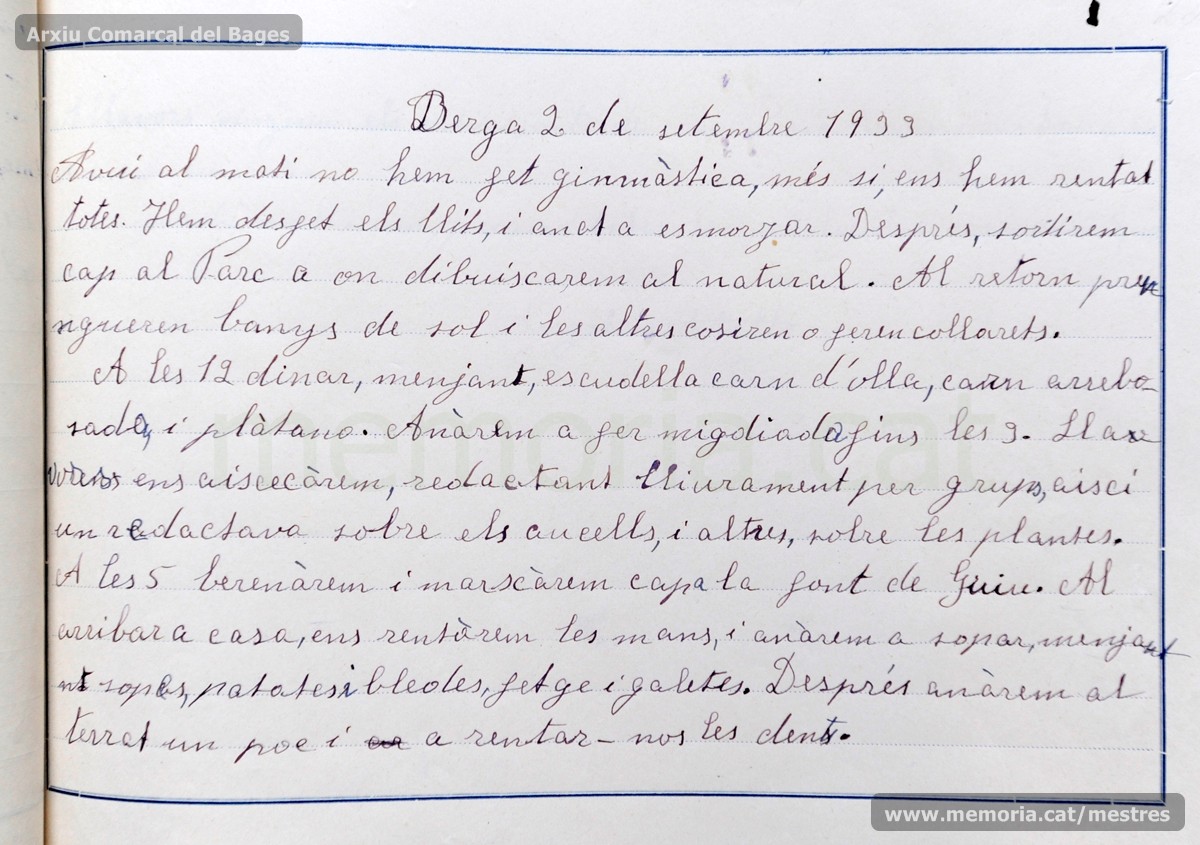 Arxiu Comarcal del Bages
1
Berga 2 de setembre 1933
Avui al mati no hem fet ginmàstica, més si, ens hem rentat
totes. Hem desfet els llits, i anat a esmorzar. Després, sortirem
cap al Parc a on dibuiscarem al natural. Al retorn pren
ngueren banys de sol i les altres cosiren o feren collarets.
A les 12 dinar, menjant, escudella carn d'olla, carn arrebo-
sada, i plàtano. Anàrem a fer migdiada fins les 3. Lla
vores ens aiscecàrem, redactant lliurament per grups, aisci
un redactava sobre els aucells, i altres, sobre les plantes.
A les 5 berenàrem i marscàrem cap a la font de Guiu. Al
arribar a casa, ens rentàrem les mans, i anàrem a sopar, menjant
nt sopes, patates i bledes, fetge i galetes. Després anàrem al
terrat un poc i a rentar-nos les dents.
memoria.cat
www.memoria.cat/mestres